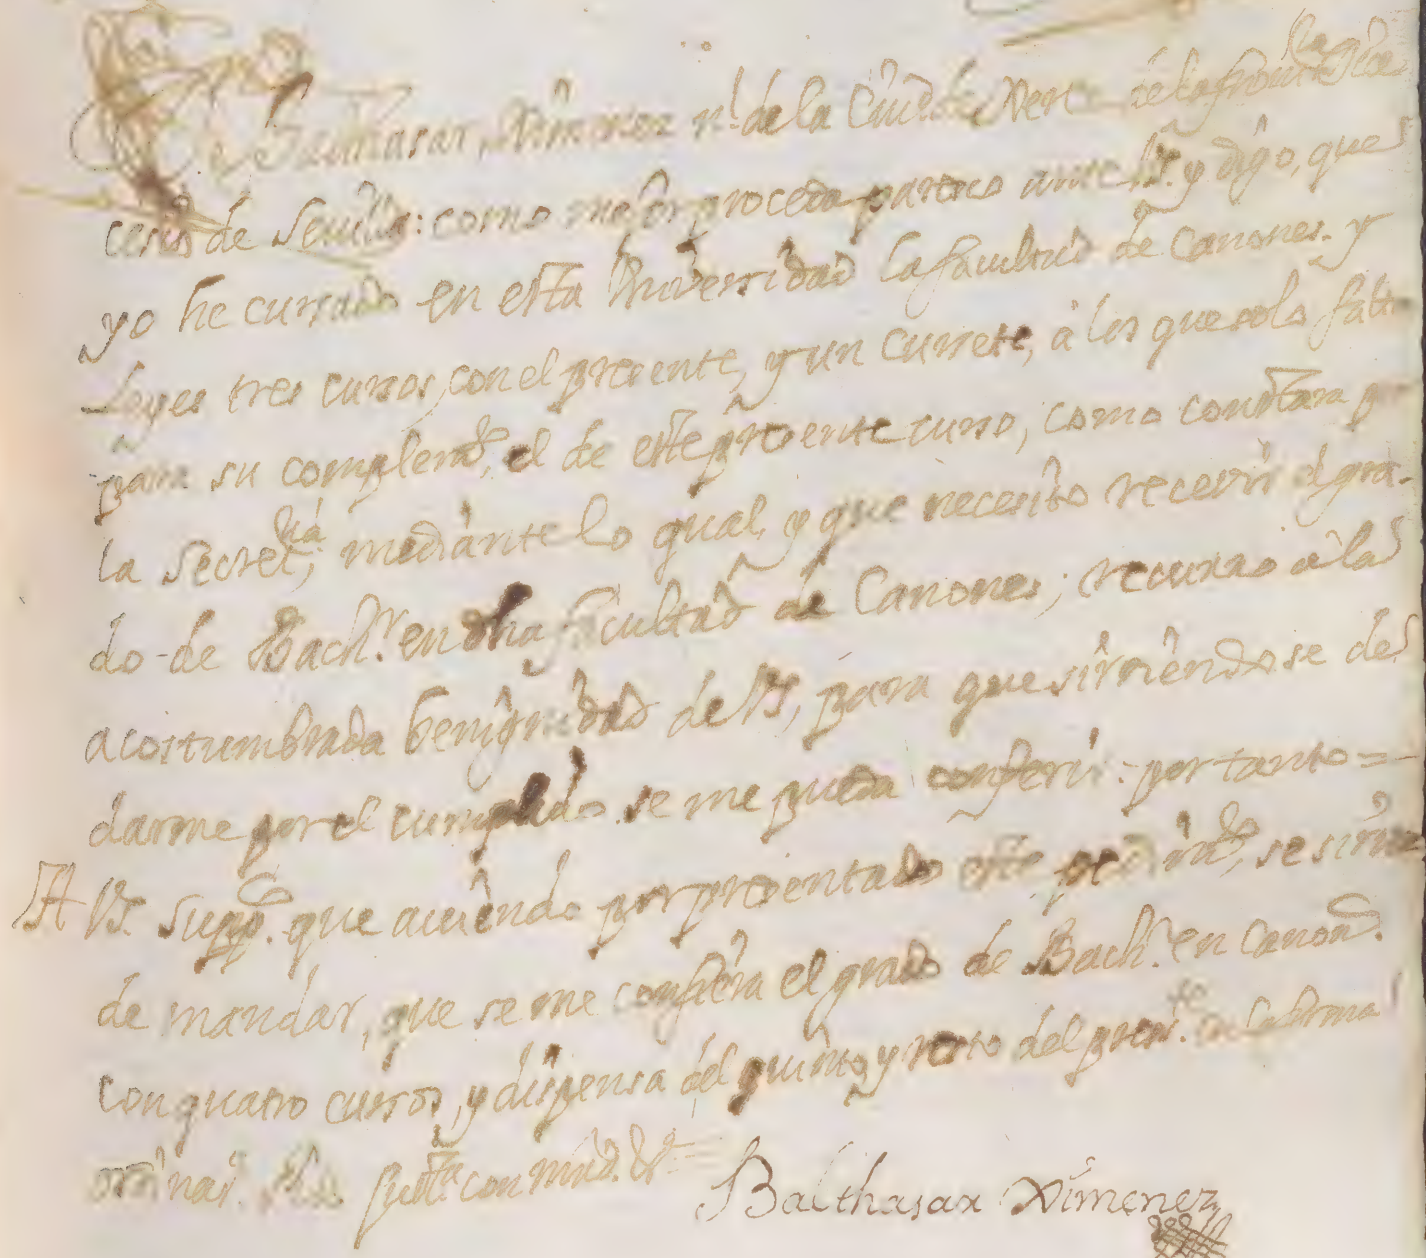 Dn. Balthasar Ximenez nl. de la Ciud. de Xerez de la frontra. Dioce-
cesis de Sevilla: como mejor proceda paresco ante VS. y digo, que
yo he cursado en esta Universidad la facultad de Canones. y
Leyes tres cursos, con el presente, y un cursete, à los que solo falta
para su complemto. el de este presente curso, como constara por
la Secretria; mediante lo qual, y que necesito recevir el gra-
do de Bachr. en dha facultad de Canones; recurro à la
acostumbrada benignidad de VS, para que sirviendose de
darme por el cumplido se me pueda conferir: por tanto =
A VS. suppco. que aviendo por presentado este pedimto, se sirva
de mandar, que se me confiera el grado de Bachr. en Canons.
con quatro cursos, y dispensa del quinto, y resto del prest.e en la forma
ordinar. justa. con mrd. &a =
Balthasar Ximenez